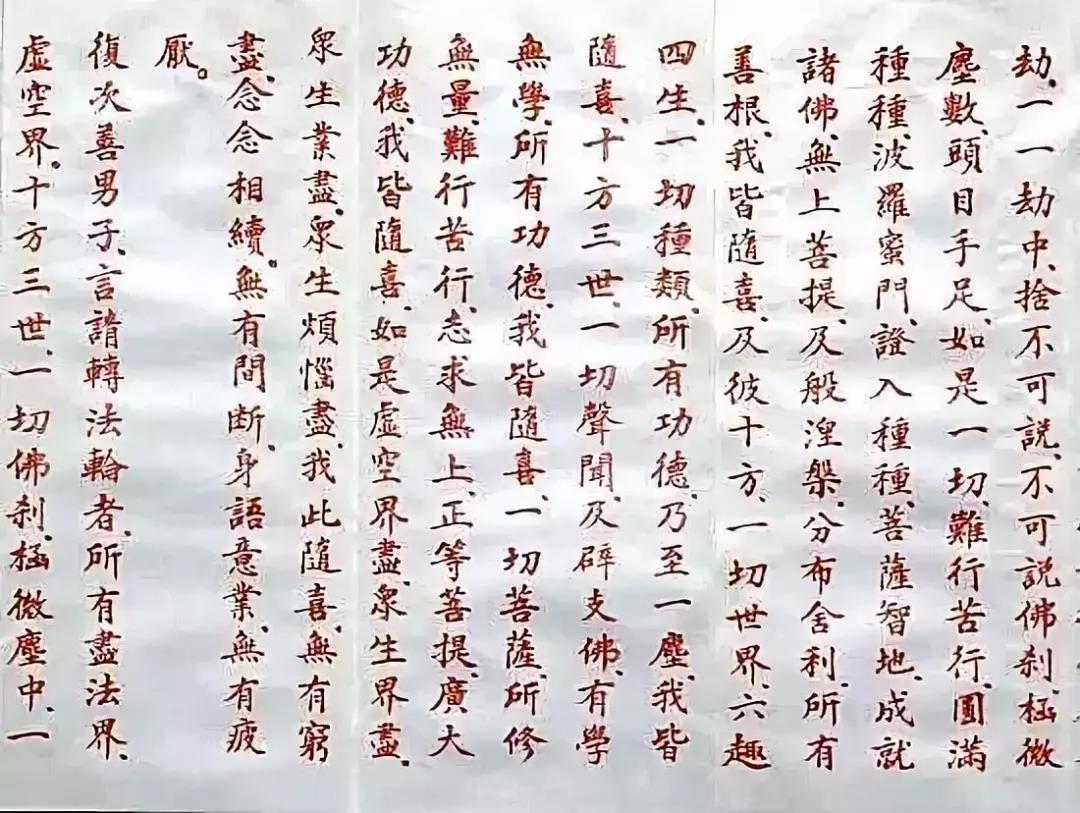 劫、一一劫中、捨不可説、不可説佛刹、極微
塵數、頭目手足、如是一切、難行苦行、圓滿
種種、波羅蜜門、證入種種、菩薩智地、成就
諸佛、無上菩提、及般涅槃、分布舍利、所有
善根、我皆隨喜、及彼十方、一切世界、六趣
四生、一切種類、所有功德、乃至一塵、我皆
隨喜、十方三世、一切聲聞、及辟支佛、有學
無學、所有功德、我皆隨喜、一切菩薩、所修
無量、難行苦行、志求無上、正等菩提、廣大
功德、我皆隨喜、如是虛空界盡、眾生界盡、
眾生業盡、眾生煩惱盡、我此隨喜、無有窮
盡、念念相續。無有間断、身語意業、無有疲
厭。
復次善男子、言請轉法輪者、所有盡法界、
虛空界。十方三世、一切佛刹、極微塵中、一